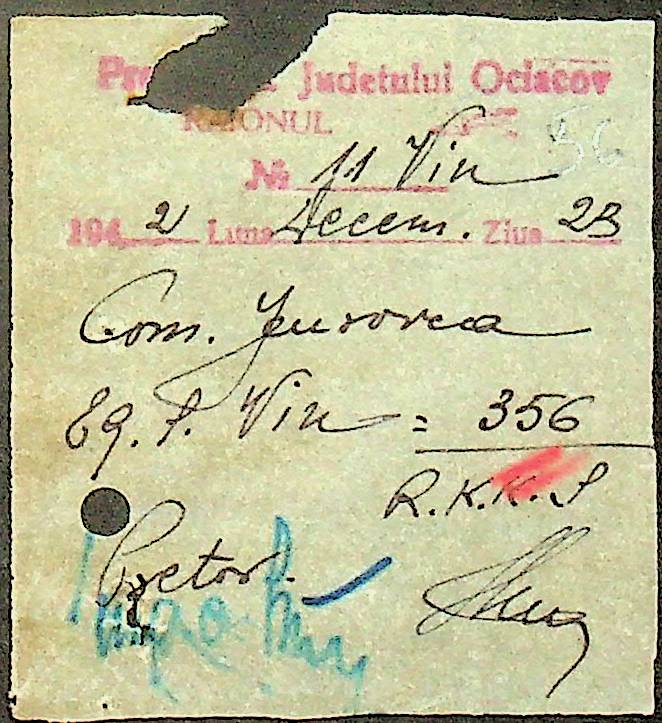 Judetului Ociacov
RAIONUL
56
№ 11 Vin
1942 Luna Decem. Ziua 23
Com.
Eg. P. Vin = 356
R.K.K.S
Pretor.